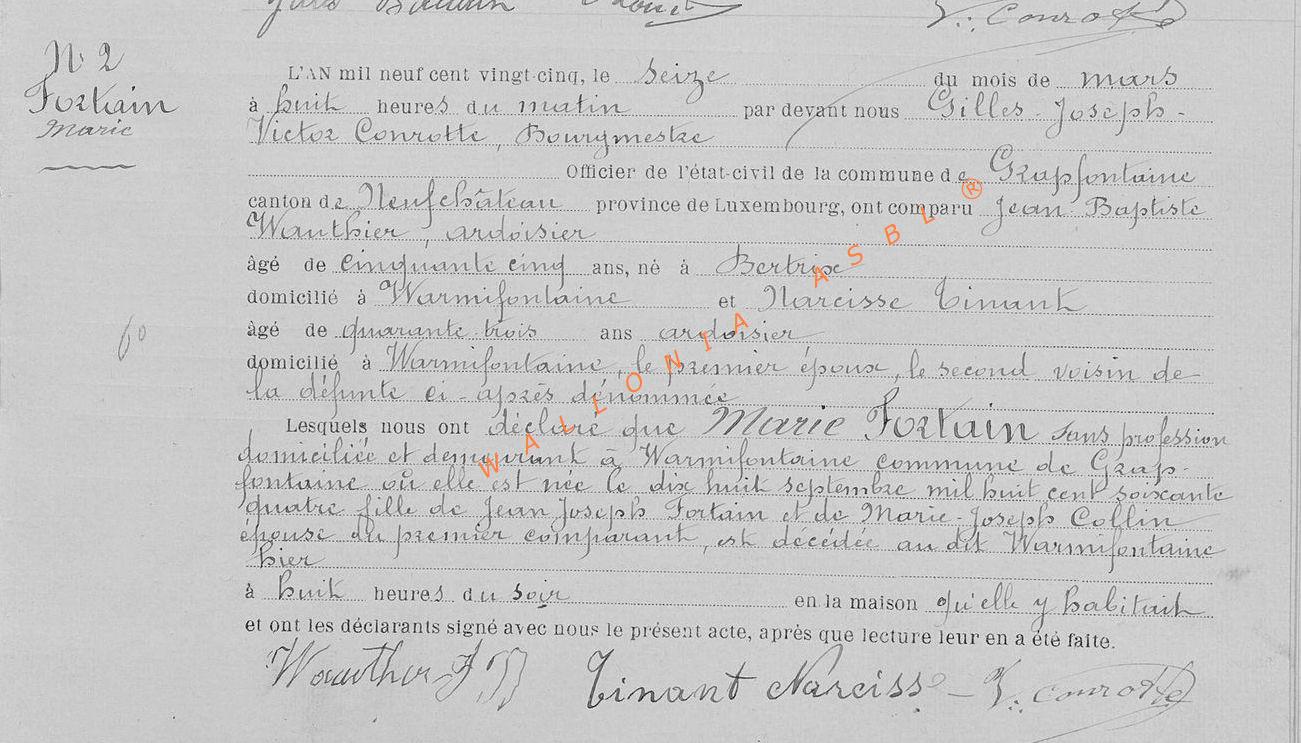 V. Conrotte
N. 2
Fortain
Marie
L'AN mil neuf cent vingt-cinq, le seize du mois de mars
à huit heures du matin par devant nous Gilles-Joseph-
Victor Conrotte, Bourgmestre
Officier de l'état-civil de la commune de Grapfontaine
canton de Neufchâteau province de Luxembourg, ont comparu Jean-Baptiste
Wauthier, ardoisier
âgé de cinquante cinq ans, né à Bertrix
domicilié à Warmifontaine et Narcisse Tinant
60
âgé de quarante-trois ans ardoisier
domicilié à Warmifontaine, le premier époux, le second voisin de
la défunte ci-après dénommée
Lesquels nous ont déclaré que Marie Fortain sans profession
domiciliée et demeurant à Warmifontaine commune de Grap-
fontaine où elle est née le dix huit septembre mil huit cent soixante
quatre fille de Jean Joseph Fortain et de Marie-Joseph Collin
épouse du premier comparant, est décédée au dit Warmifontaine
hier
à huit heures du soir en la maison qu'elle y habitait
et ont les déclarants signé avec nous le présent acte, après que lecture leur en a été faite.
Wauthier J Bt Tinant Narcisse - V. Conrotte
WALLONIA ASBL ®